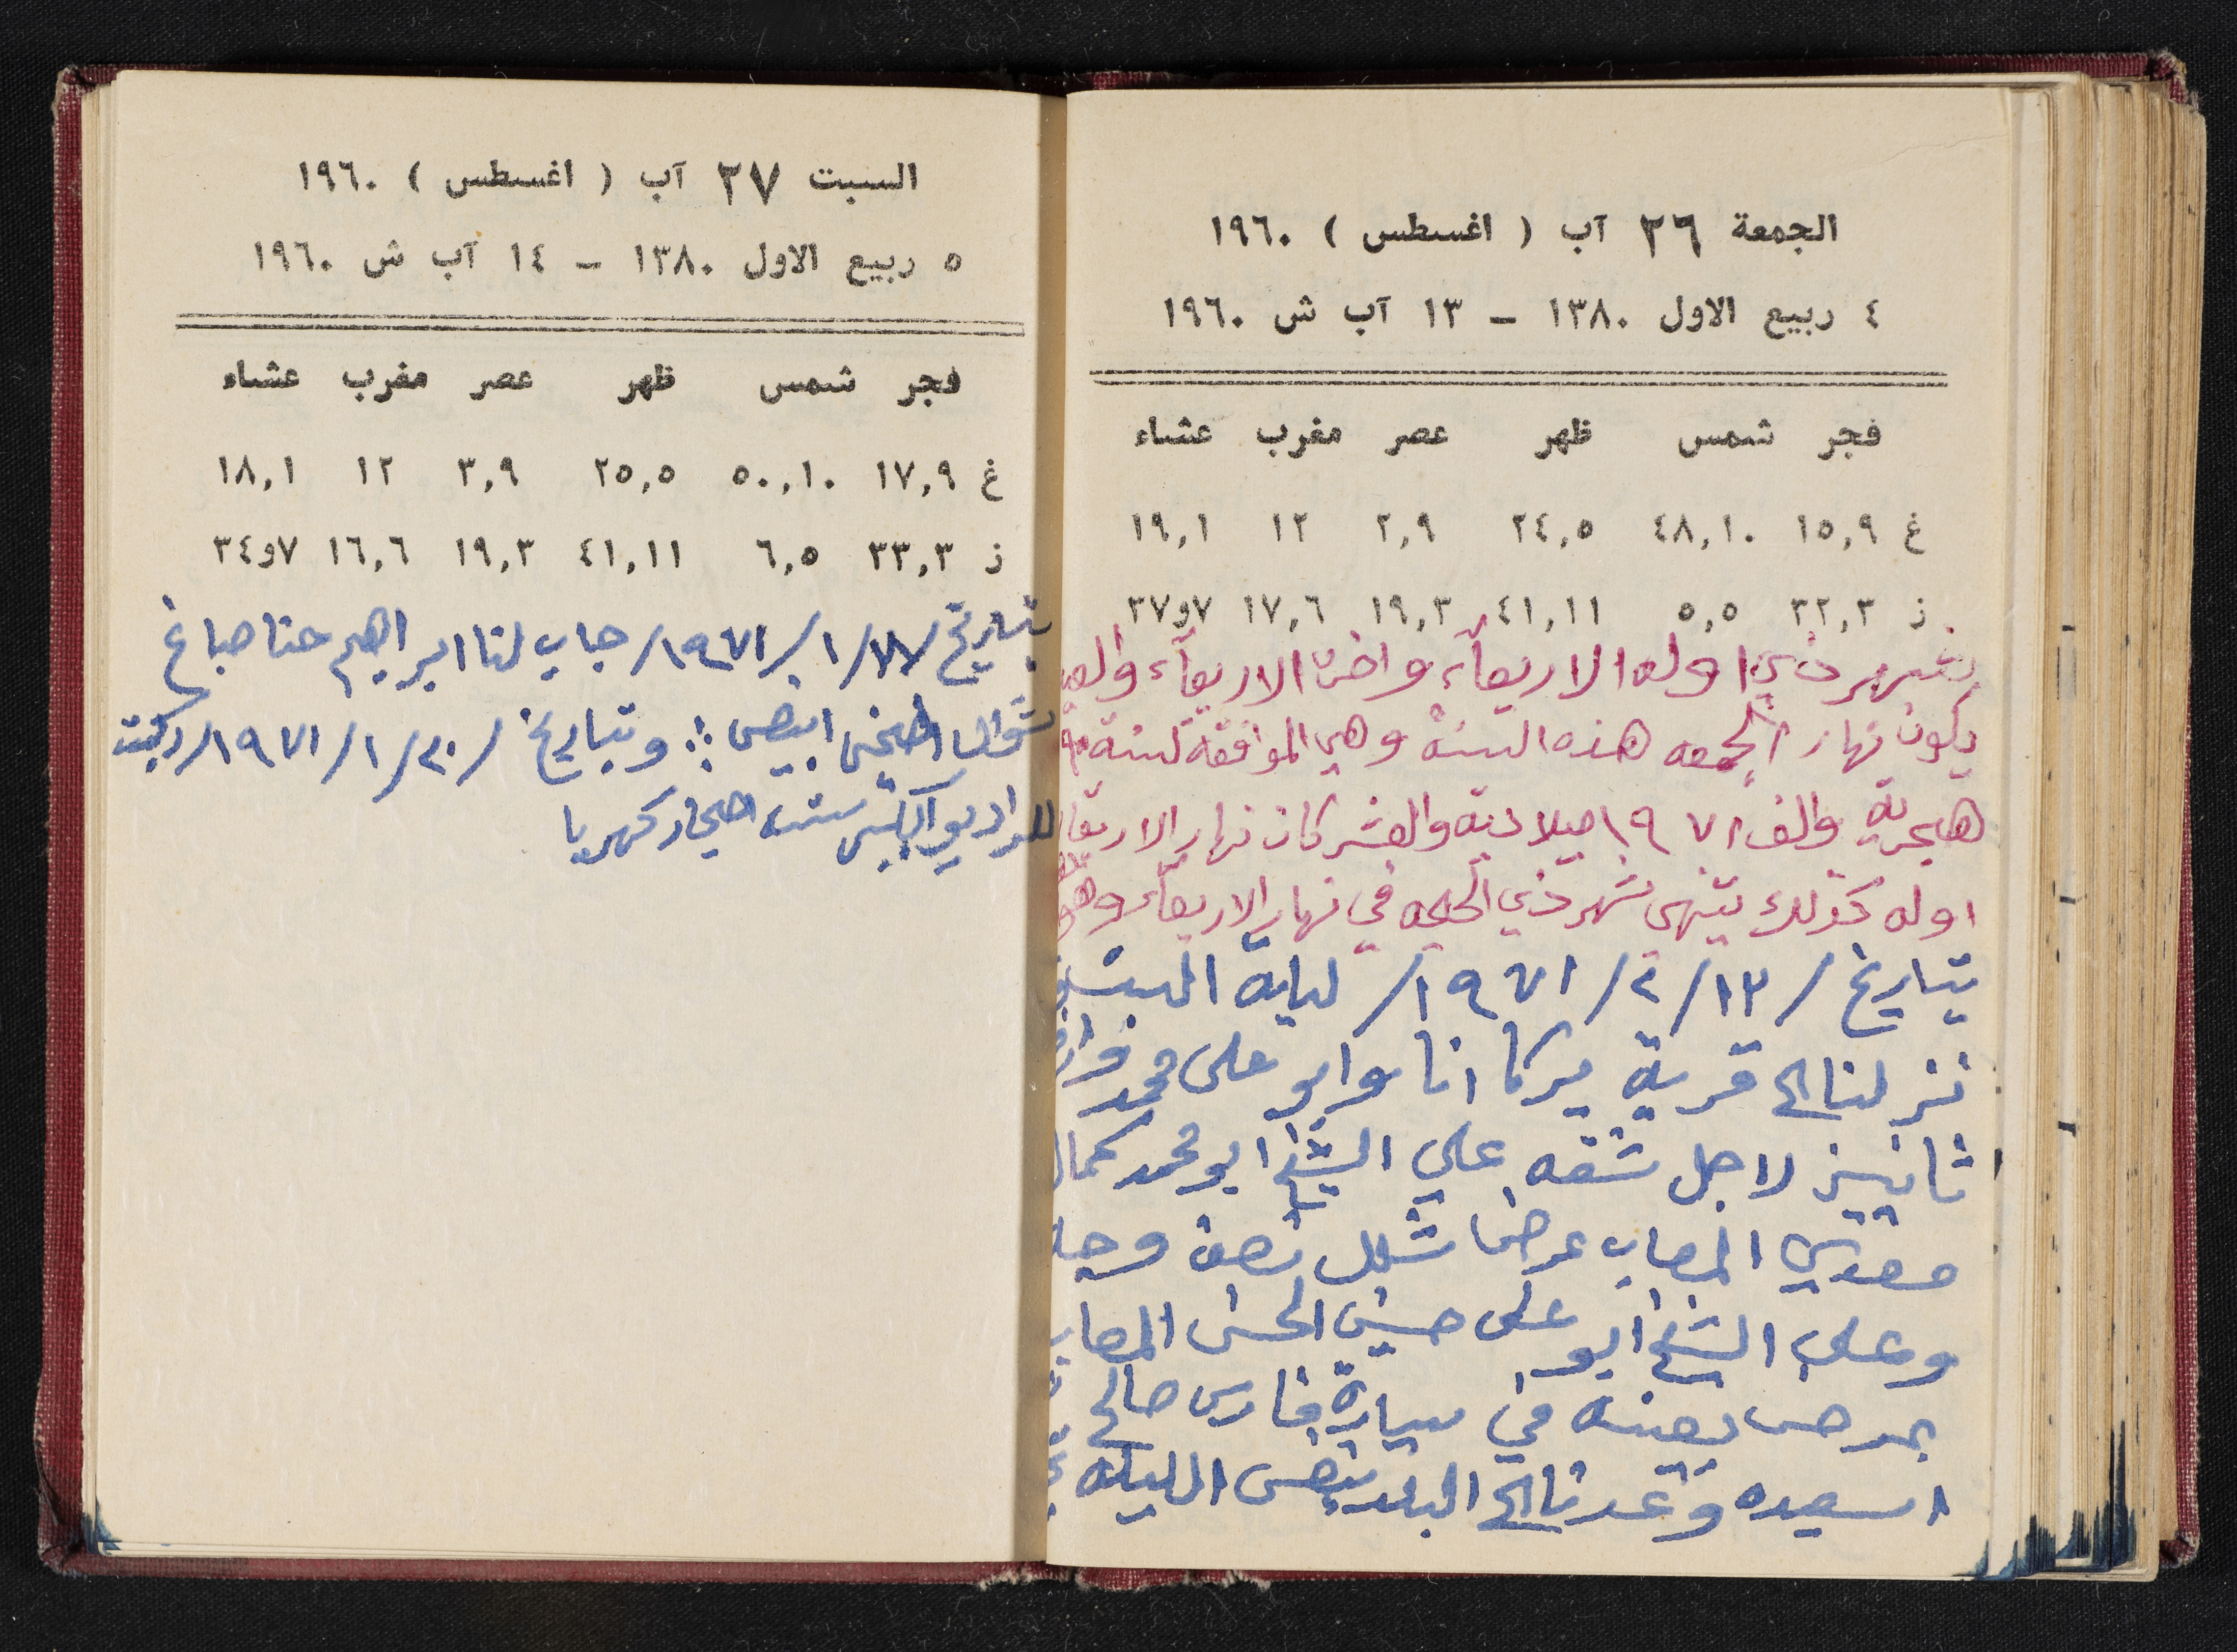 الجمعة ٢٦ آب ( اغسطس ) ١٩٦٠
٤ ربيع الاول ١٣٨٠ - ١٣ آب ش ١٩٦٠
فجر شمس ظهر عصر مغرب عشاء
غ ١٥,٩ ٤٨,١٠ ٢٤,٥ ٢,٩ ١٢ ١٩,١
ز ٣٢,٣ ٥,٥ ٤١,١١ ١٩,٣ ١٧,٦ ٧و٣٧
شهر ذي اوله الاربعآء واخره الاربعآء والعيد
يكون نهار الجمعه هذه السنة وهي الموافقة لسنة
هجرية والف ١٩٧١ ميلادية والعشر كان نهار الاربعآء
اوله كذلك ينتهي شهر ذي الحجه في نهار الاربعآء وهو
بتاريخ /١٣/٢/١٩٧١/ ليلة السبت
نزلنا الى قرية يركا انا وابو علي محمد فوا
ثانيين لاجل شقه علي الشيخ ابو محمد كمال
معدي المصاب عرضا شلل نصف وجه
وعلي الشيخ ابو علي حسين الحسن المصاب
بمرض بعينه في سيارة فارس صالح
اسعيده وعدنا الى البلد بنفس الليله
السبت ٢٧ آب ( اغسطس ) ١٩٦٠
٥ ربيع الاول ١٣٨٠ - ١٤ آب ش ١٩٦٠
فجر شمس ظهر عصر مغرب عشاء
غ ١٧,٩ ٥٠,١٠ ٢٥,٥ ٣,٩ ١٢ ١٨,١
ز ٣٣,٣ ٦,٥ ٤١,١١ ١٩,٣ ١٦,٦ ٧و٣٤
بتاريخ /١٧/١/١٩٧١/ جاب لنا ابراهيم حنا صباغ
شوال ابيض : وبتاريخ /٢٠/١/١٩٧١/ ركبت
للراديو ست احجار كهربا